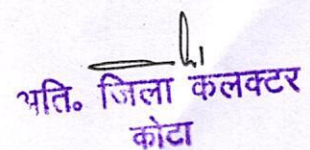 अति. जिला कलक्टर
कोटा